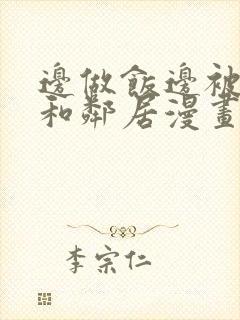 邊做飯邊被
和鄰居漫畫
李宗仁